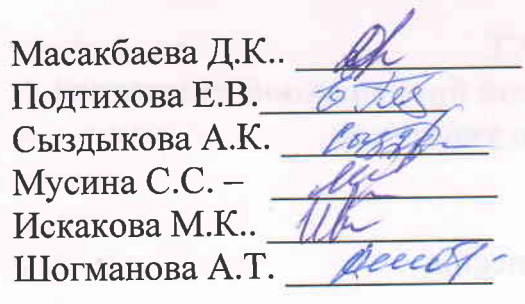 Масакбаева Д.К..
Подтихова Е.В.
Сыздыкова А.К.
Мусина С.С. –
Искакова М.К..
Шогманова А.Т.